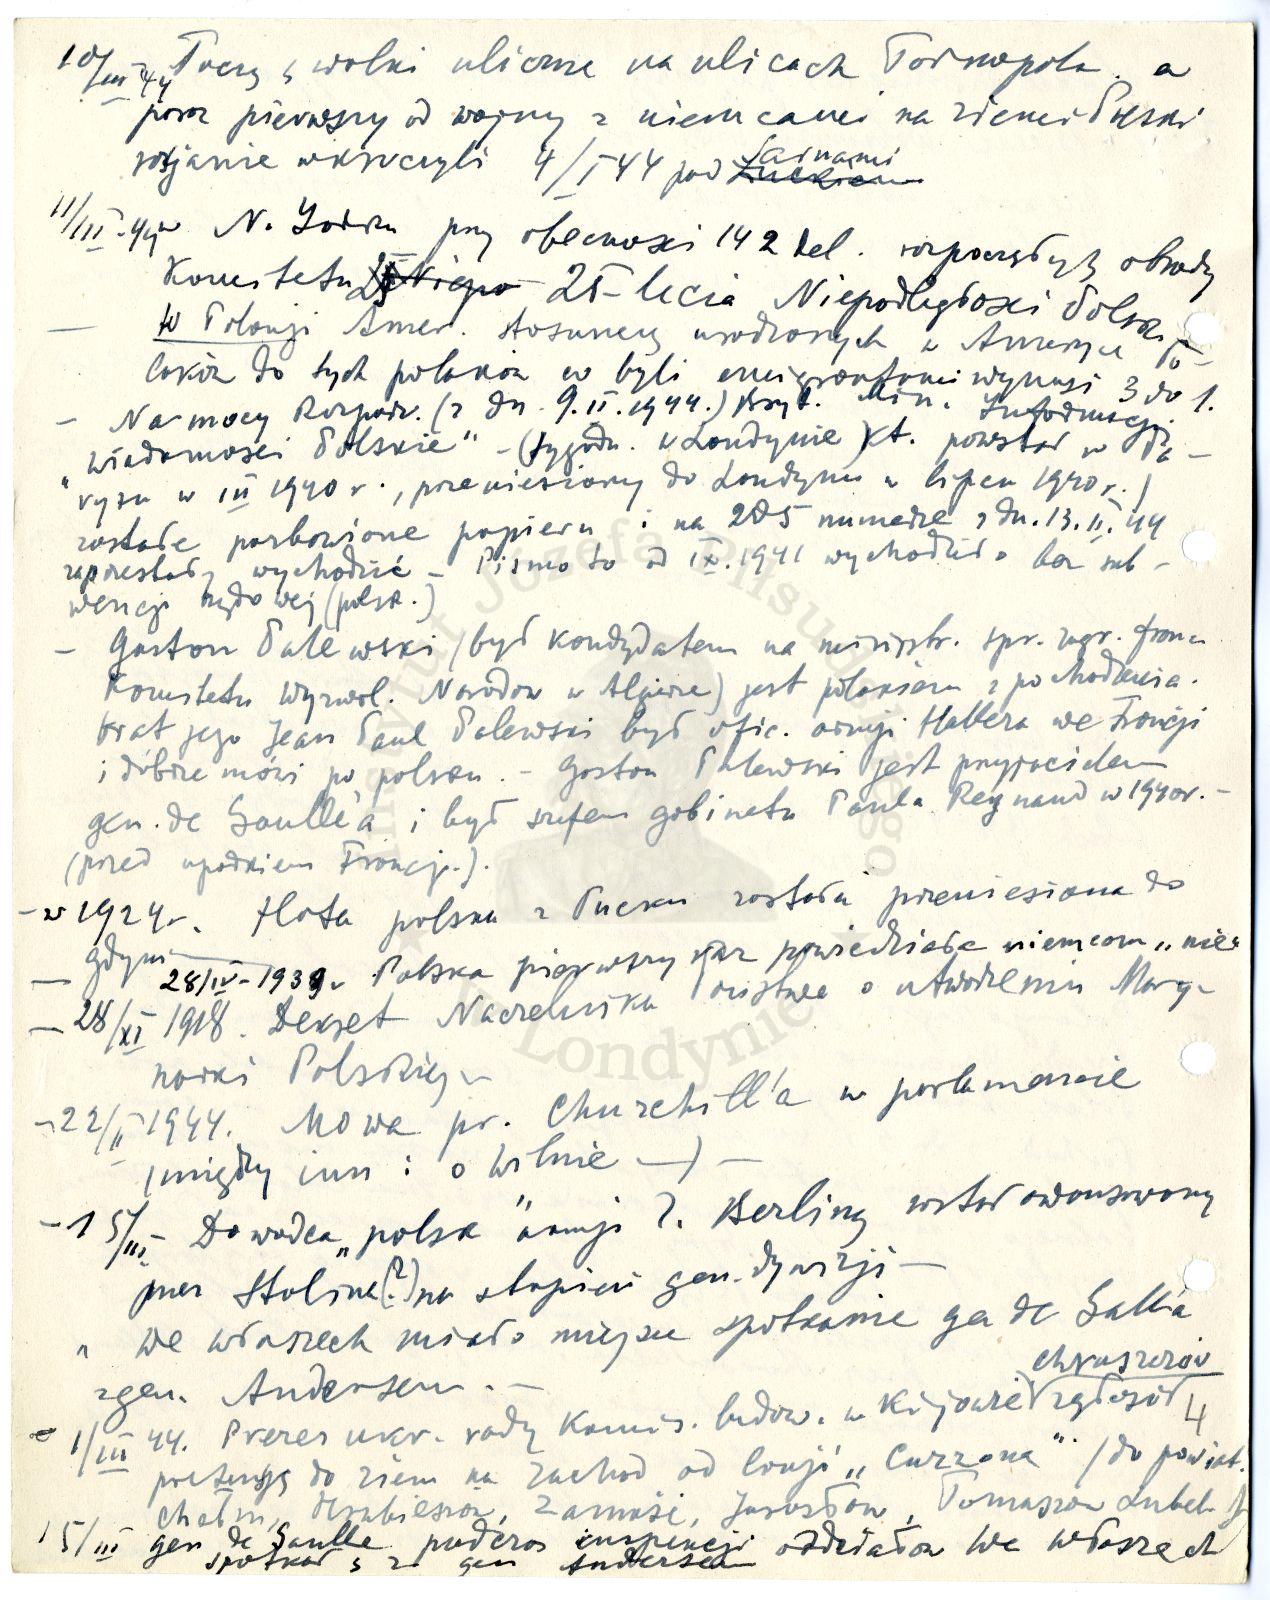 10/III 44 Toczą s walki uliczne na ulicach Tarnopola. a
poraz pierwszy od wojny z niemcami na ziemi Polski
rosjanie wkroczyli 4/I 44 pod Sarnami
11/III-44 w N. Yorku przy obecności 142 del. rozpoczęły obrady
Komitetu 25-lecia Niepodległości Polski
— W Polonji Amer. stosunek urodzonych w Ameryce Po-
laków do tych polaków co byli emigrantami wynosi 3 do 1.
— Na mocy Rozporz. (z dn. 9.II.1944.) Bryt. Min. Informacji
"Wiadomości Polskie" - (tygodn. w Londynie) kt. powstał w Pa-
ryżu w III 1940 r., przeniesiony do Londynu w lipcu 1940 r.)
zostałe pozbawione papieru i na 205 numerze z dn. 13.II.44
zaprestały wychodzić — Pismo to od IX.1941 wychodziło bez sub-
wencji rządowej (polsk.)
— Gaston Palewski (był kandydatem na ministr. spr. zagr. franc
Komitetu Wyzwol. Narodow w Algierze) jest polakiem z pochodzenia.
brat jego Jean Paul Palewski był ofic. armji Hallera we Francji
i dobrze mówi po polsku. — Gaston Palewski jest przyjacielem
gen. de Gaulle'a i był szefem gabinetu Paula Reynaud w 1940r. -
(przed upadkiem Francji.).
— w 1924r. flota polska z Pucku została przeniesiona do
Gdyni
— 28/IV-1939r Polska pierwszy raz powiedziała niemcom "nie"
— 28/XI 1918. Dekret Naczelnika Państwa o utworzeniu Mary-
narki Polskiej —
— 22/II 1944. Mowa pr. Churchill'a w parlamencie
(między inn: o Wilnie —) —
— 15/III — Dowódca "polsk" armji Z. Berling został awansowany
przez Stalina (?) na stopień gen. dywizji —
" We Włoszech miało miejsce spotkanie gen de Gaulla
z gen. Andersem. —
Chruszczow
1/III 44. Prezes ukr. rady Komis. ludow. w Kijowie zgłosił
pretensją do ziem na zachod od linji "Curzona". (do powiat.
Chełm, Hrubieszow, Zamość, Jarosław, Tomaszow Lubel.)
15/III gen de Gaulle podczas inspekcji oddziałow we Włoszech
spotkał s z gen Andersem
4
Instytut Józefa Piłsudskiego
w Londynie